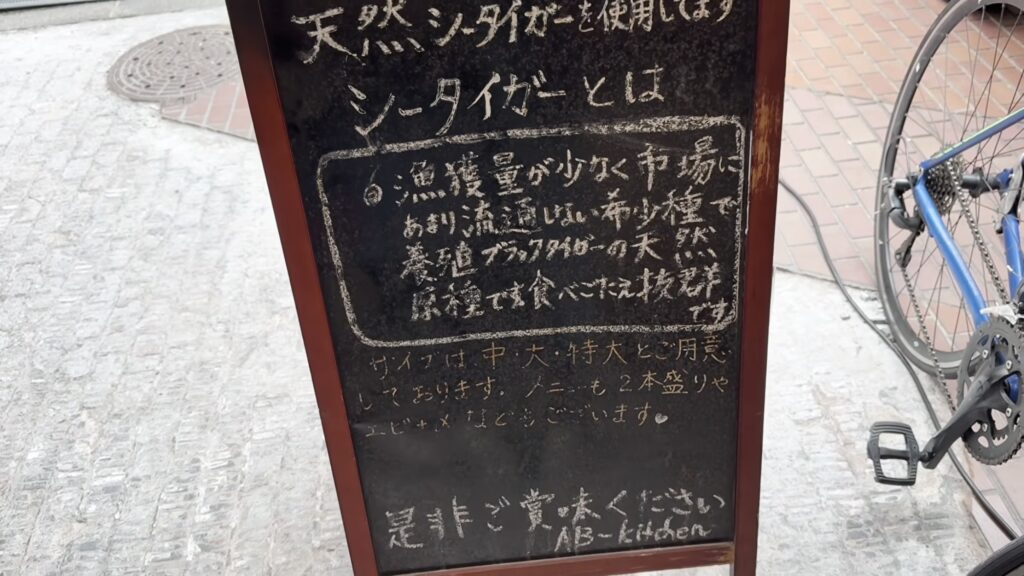 天然シータイガーを使用してます
シータイガーとは
漁獲量が少なく市場に
あまり流通しない希少種で
養殖ブラックタイガーの天然
原種でも食べごたえ抜群
です
サイズは中・大・特大とご用意
しております。ノニーも2本盛りや
などもございます。
是非ご賞味ください
AB-kitchen